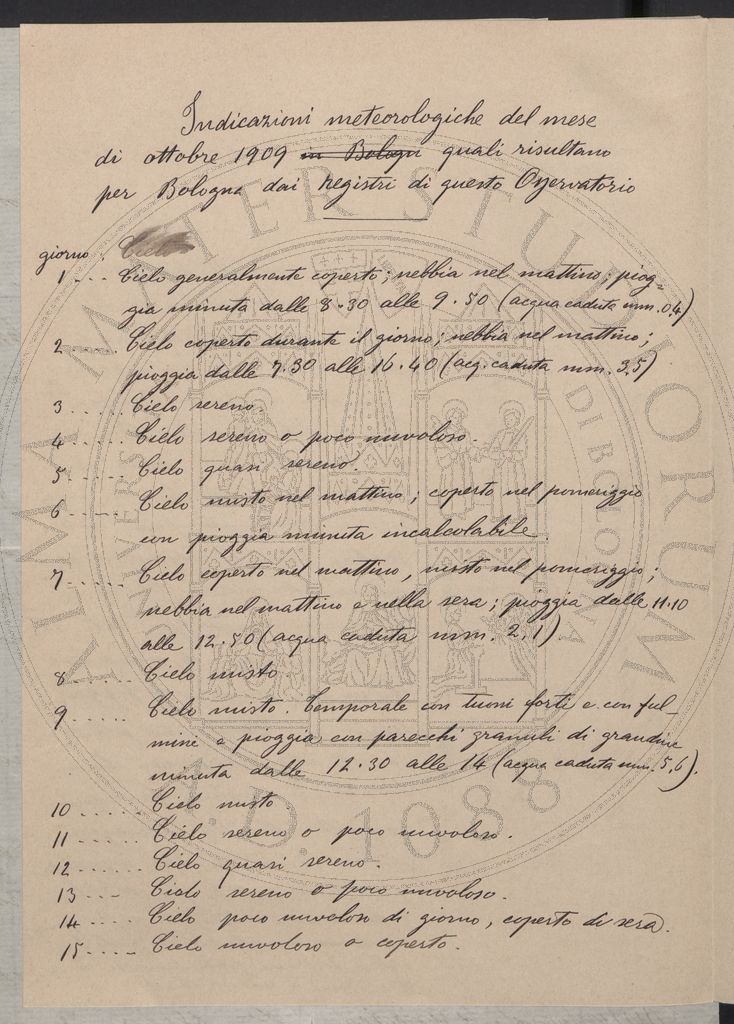 Indicazioni meteorologiche del mese
di ottobre 1909 in Bologn quali risultano
per Bologna dai Registri di questo Osservatorio
giorno. Cielo
1 ... Cielo generalmente coperto; nebbia nel mattino; piog=
gia minuta dalle 8.30 alle 9.50 (acqua caduta mm. 0,4)
2 ..... Cielo coperto durante il giorno; nebbia nel mattino;
pioggia dalle 7.30 alle 16.40 (acq. caduta mm. 3,5)
3 ..... Cielo sereno.
4 ..... Cielo sereno o poco nuvoloso.
5 ..... Cielo quasi sereno.
6 ..... Cielo misto nel mattino; coperto nel pomeriggio
con pioggia minuta incalcolabile.
7 ..... Cielo coperto nel mattino, misto nel pomeriggio;
nebbia nel mattino e nella sera; pioggia dalle 11.10
alle 12.50 (acqua caduta mm. 2,1)
8 ..... Cielo misto.
9 ..... Cielo misto. Temporale con tuoni forti e con ful_
mine e pioggia con parecchi granuli di grandine
minuta dalle 12.30 alle 14 (acqua caduta mm. 5,6).
10 ..... Cielo misto
11 ..... Cielo sereno o poco nuvoloso.
12 ...... Cielo quasi sereno.
13 .... Cielo sereno o poco nuvoloso.
14 ..... Cielo poco nuvoloso di giorno, coperto di sera.
15 ..... Cielo nuvoloso o coperto.
ALMA MATER STUDIORUM
UNIVERSI DI BOLOGNA
A.D. 1088